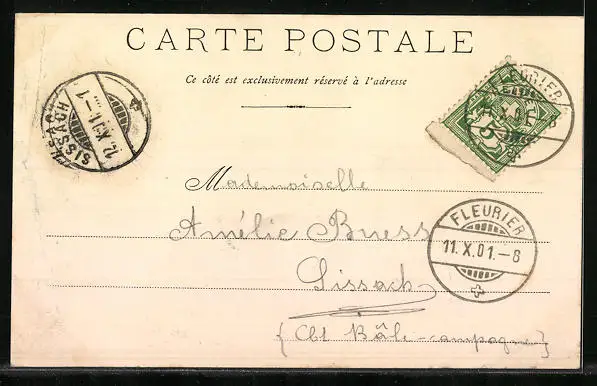 CARTE POSTALE
Ce côté est exclusivement réservé à l'adresse
SISSACH
12. X. 01. – 1
SISSACH
FLEURIER
5
Mademoiselle
Amélie Buess
Sissach
(Cht Bâle-campagne)
FLEURIER
11. X. 01. – 8